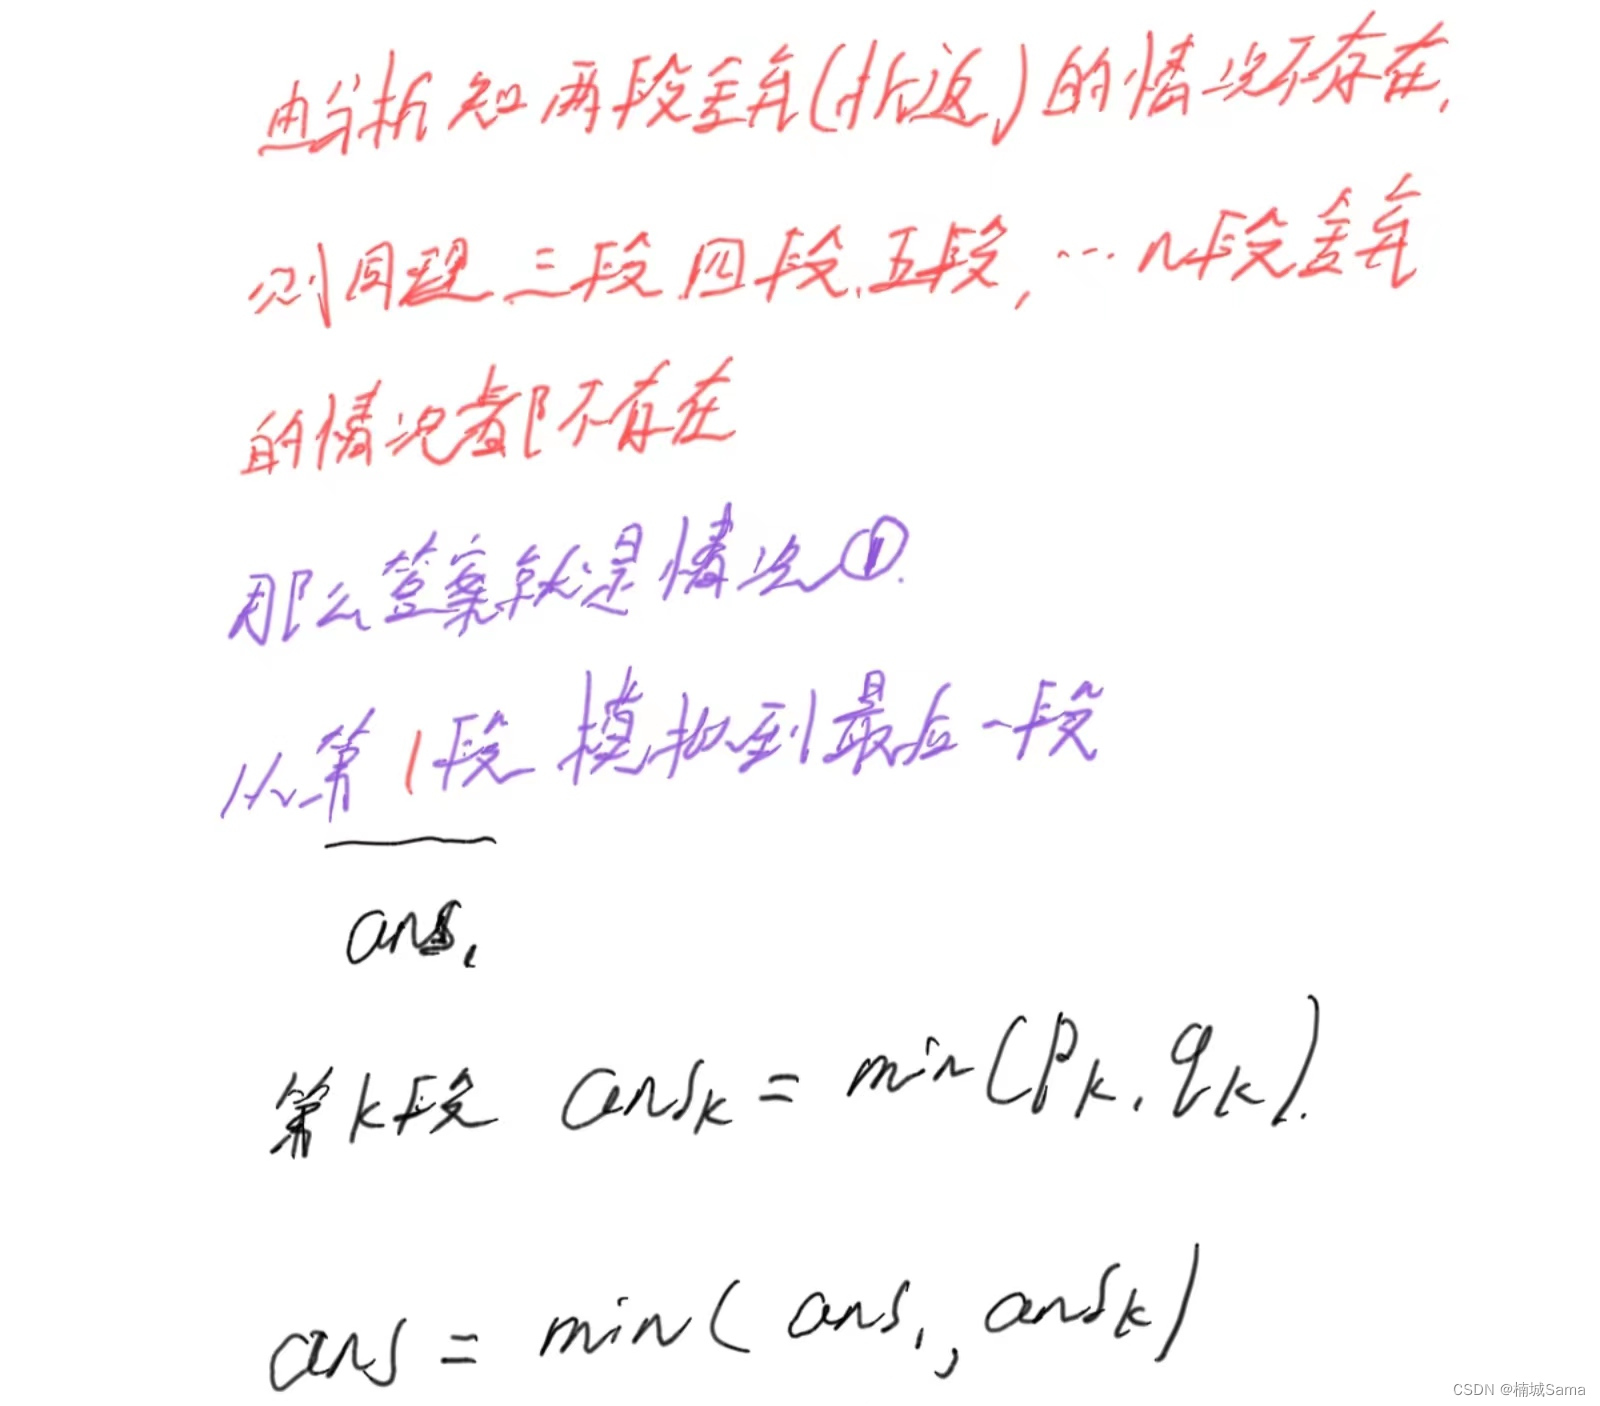 由分析知两段舍弃(折返)的情况不存在,
则同理三段.四段.五段, ... n段舍弃
的情况都不存在
那么答案就是情况①.
从第1段模拟到最后一段
ans₁
第k段 ansₖ = min(pₖ, qₖ).
ans = min( ans₁, ansₖ)
CSDN @楠城Sama